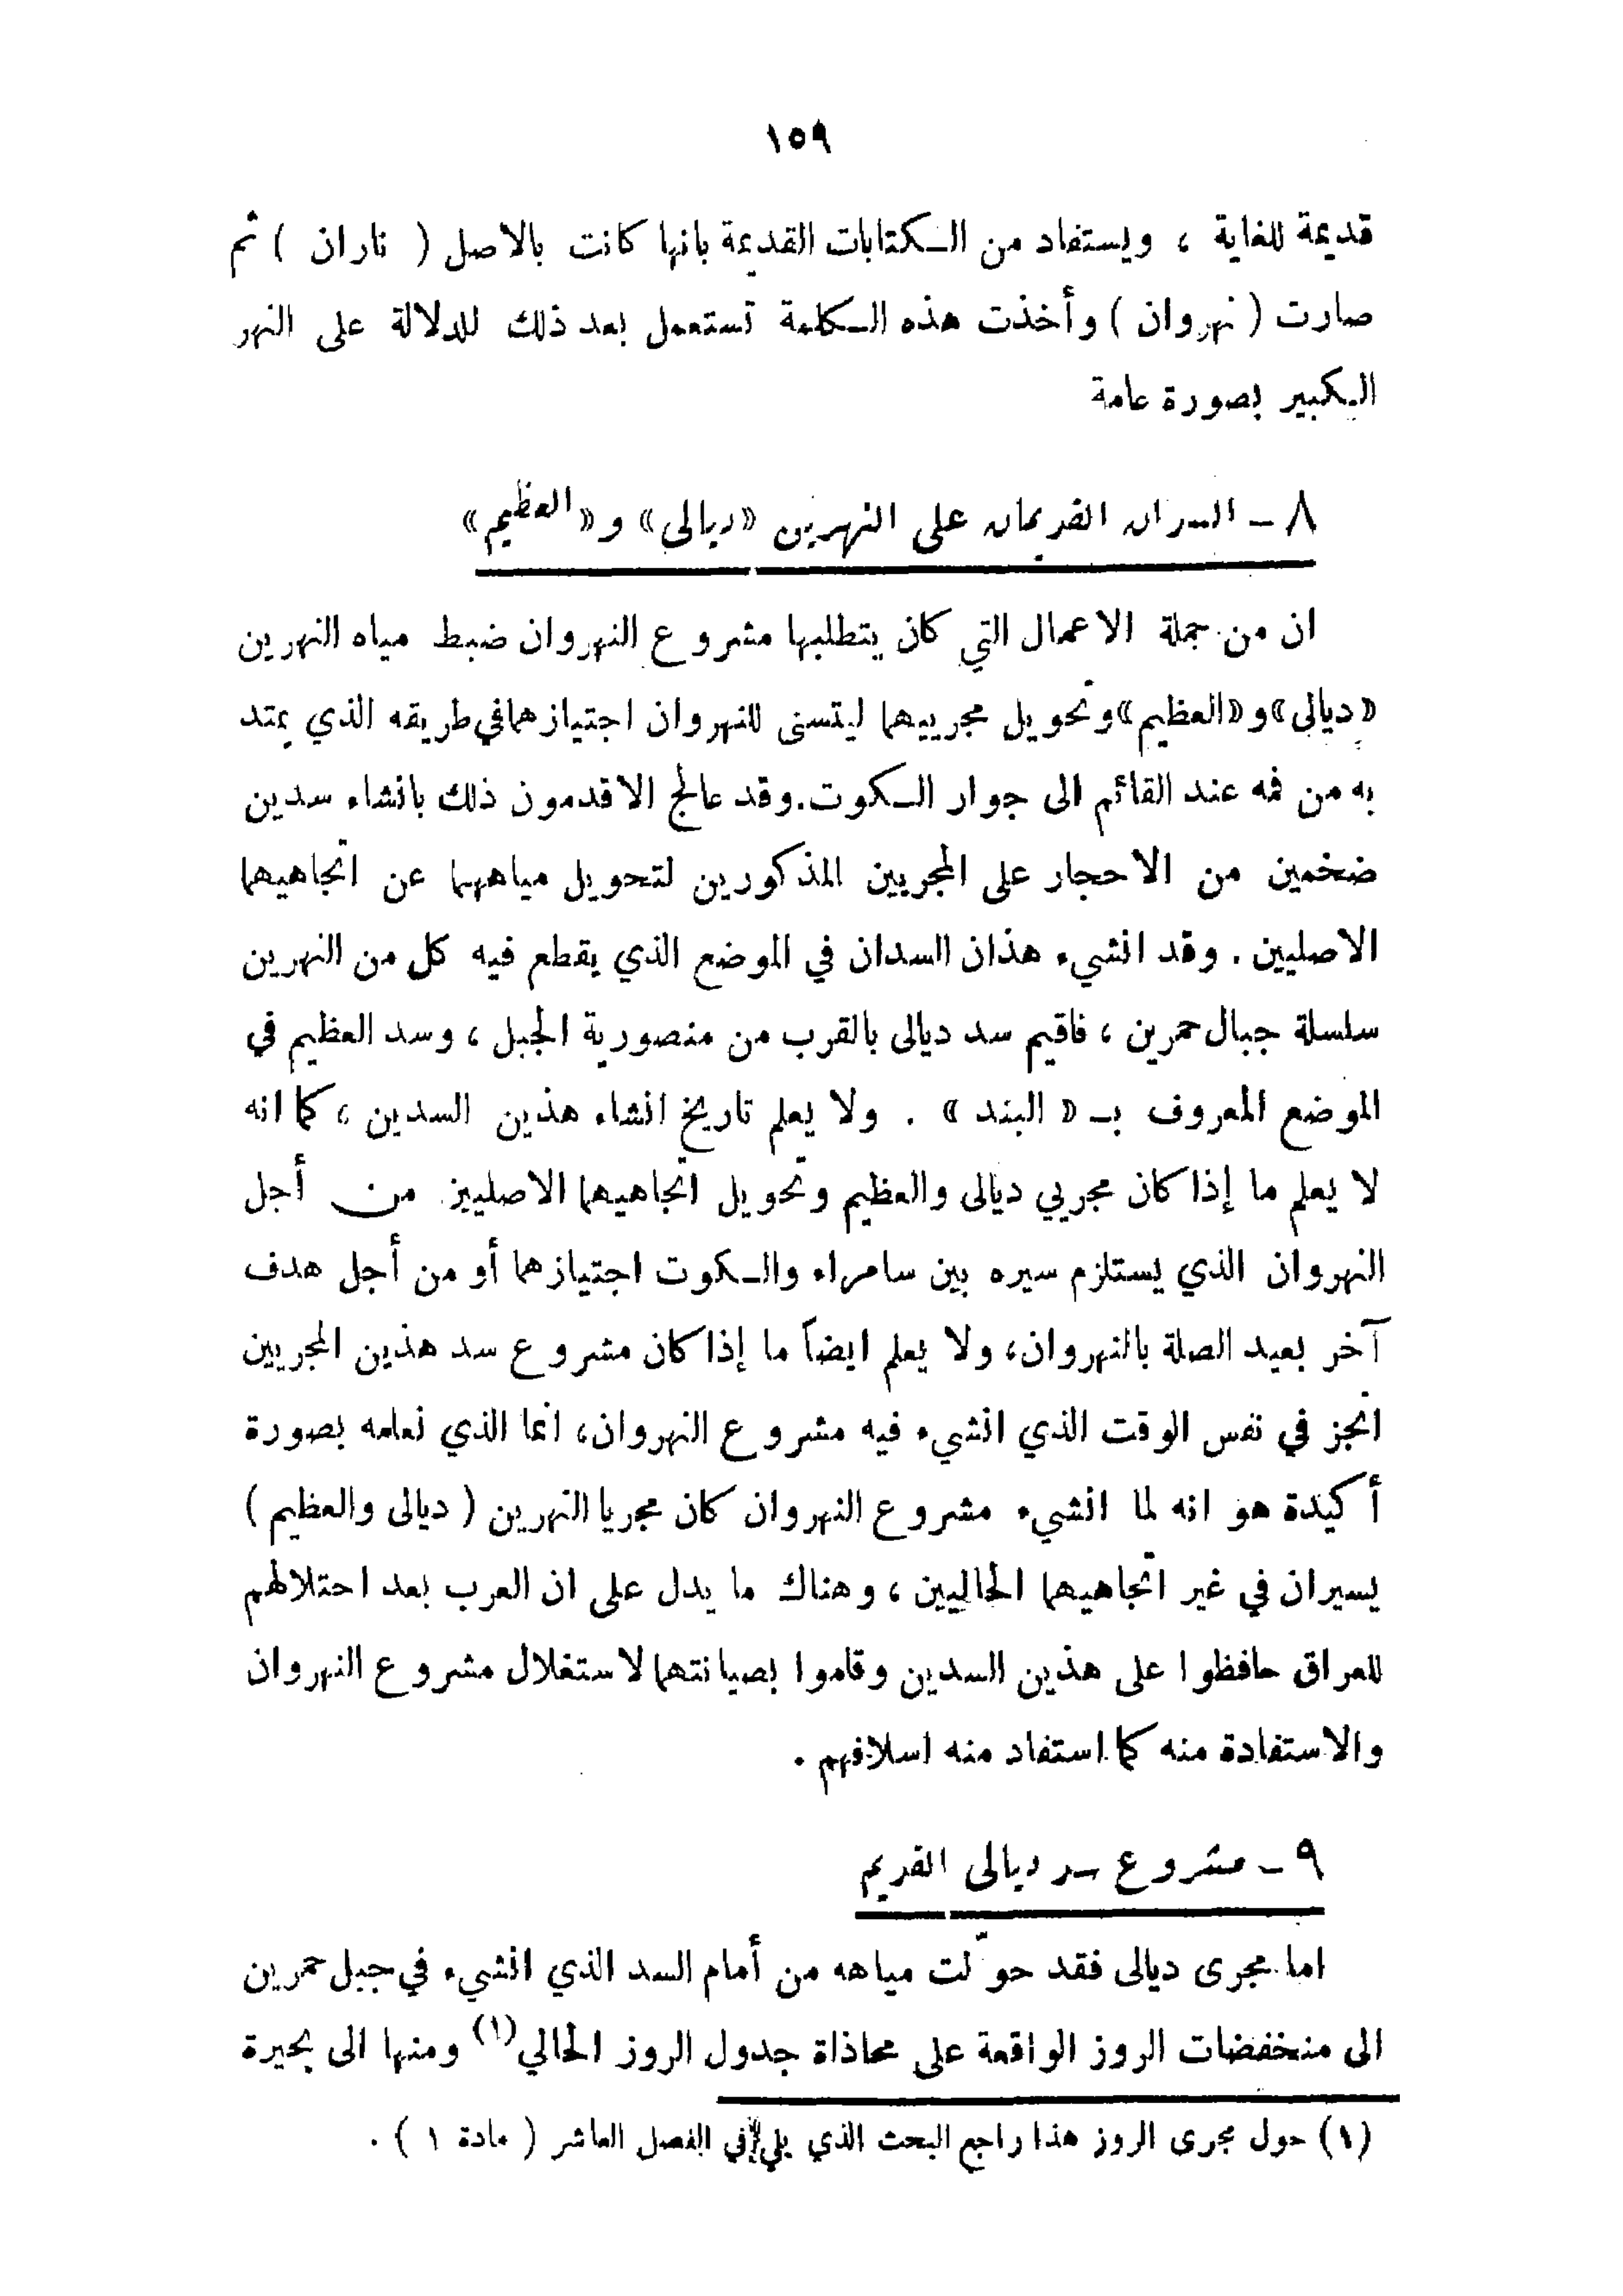 ١٥٩
قديمة للغاية ، ويستفاد من الكتابات القديمة بانها كانت بالاصل ( ناران ) ثم
صارت ( نهروان ) وأخذت هذه الكلمة تستعمل بعد ذلك للدلالة على النهر
الكبير بصورة عامة
٨ - السدان القديمان على النهرين «ديالى» و «العظيم»
ان من جملة الاعمال التي كان يتطلبها مشروع النهروان ضبط مياه النهرين
«ديالى» و«العظيم» وتحويل مجرييهما ليتسنى للنهروان اجتيازهما في طريقه الذي يمتد
به من فمه عند القائم الى جوار الكوت. وقد عالج الاقدمون ذلك بانشاء سدين
ضخمين من الاحجار على المجريين المذكورين لتحويل مياههما عن اتجاهيهما
الاصليين . وقد انشيء هذان السدان في الموضع الذي يقطع فيه كل من النهرين
سلسلة جبال حمرين ، فاقيم سد ديالى بالقرب من منصورية الجبل ، وسد العظيم في
الموضع المعروف بـ « البند » . ولا يعلم تاريخ انشاء هذين السدين ، كما انه
لا يعلم ما إذا كان مجريي ديالى والعظيم وتحويل اتجاهيهما الاصليين من أجل
النهروان الذي يستلزم سيره بين سامراء والكوت اجتيازهما أو من أجل هدف
آخر بعيد الصلة بالنهروان، ولا يعلم ايضاً ما إذا كان مشروع سد هذين المجريين
انجز في نفس الوقت الذي انشيء فيه مشروع النهروان، انما الذي نعلمه بصورة
أكيدة هو انه لما انشيء مشروع النهروان كان مجريا النهرين ( ديالى والعظيم )
يسيران في غير اتجاهيهما الحاليين ، وهناك ما يدل على ان العرب بعد احتلالهم
للعراق حافظوا على هذين السدين وقاموا بصيانتهما لاستغلال مشروع النهروان
والاستفادة منه كما استفاد منه اسلافهم .
٩ - مشروع سد ديالى القديم
اما مجرى ديالى فقد حوّلت مياهه من أمام السد الذي انشيء في جبل حمرين
الى منخفضات الروز الواقعة على محاذاة جدول الروز الحالي (١) ومنها الى بحيرة
(١) حول مجرى الروز هذا راجع البحث الذي يلي في الفصل العاشر ( مادة ١ ) .